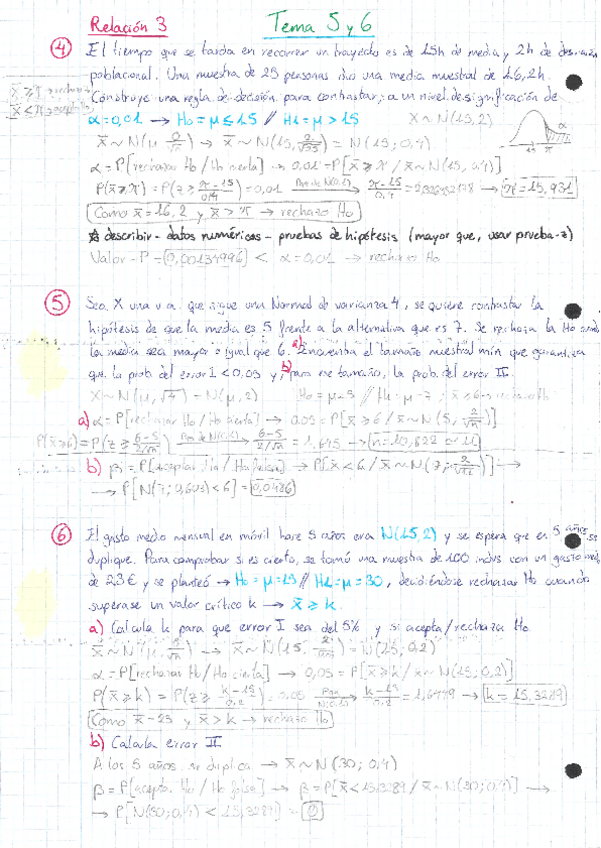 Relación 3 Tema 5 y 6
④ El tiempo que se tarda en recorrer un trayecto es de 15h de media y 2h de
poblacional. Una muestra de 25 personas dio una media muestral de 16,2h.
Construye una regla de decisión para contrastar, a un nivel de significación de
α=0,01 → H₀ = μ ≤ 15 // H₁ = μ > 15 X ~ N(15,2)
x̄ ~ N(μ, 2/√n) → x̄ ~ N(15, 2/√25) = N(15, 0,4)
α = P[rechazar H₀ / H₀ cierta] → 0,01 = P[x̄ ≥ π / x̄ ~ N(15, 0,4)]
P(x̄ ≥ π) = P(z ≥ (π-15)/0,4) = 0,01 → (π-15)/0,4 → π = 15,931
Como x̄ = 16,2 y x̄ > π → rechazo H₀
☆ describir - datos numéricos - pruebas de hipótesis (mayor que, usar prueba-z)
Valor - P = 0,00134996 < α = 0,01 → rechazo H₀
⑤ Sea X una v.a. que sigue una Normal de varianza 4, se quiere contrastar la
hipótesis de que la media es 5 frente a la alternativa que es 7. Se rechaza la H₀ cuando
la media sea mayor o igual que 6. a) Encuentra el tamaño muestral mín que garantiza
que la prob. del error I < 0,05 y, b) para ese tamaño, la prob. del error II.
X ~ N(μ, √4) → N(μ, 2) H₀ = μ = 5 // H₁ = μ = 7
a) α = P[rechazar H₀ / H₀ cierta] → 0,05 = P[x̄ ≥ 6 / x̄ ~ N(5, 2/√n)]
P(x̄ ≥ 6) = P(z ≥ (6-5)/(2/√n)) → (6-5)/(2/√n) = 1,645 → n = 10,822 ≈ 11
b) β = P[aceptar H₀ / H₀ falsa] → P[x̄ < 6 / x̄ ~ N(7, 2/√11)] →
→ P[N(7; 0,603) < 6] = 0,0486
⑥ El gasto medio mensual en móvil hace 5 años era N(15,2) y se espera que en 5 años se
duplique. Para comprobar si es cierto, se tomó una muestra de 100 indvs con un gasto med
de 23€ y se planteó → H₀ = μ = 15 // H₁ = μ = 30, decidiéndose rechazar H₀ cuando
superase un valor crítico k → x̄ ≥ k.
a) Calcula k para que error I sea del 5% y si acepta/rechaza H₀
x̄ ~ N(μ, /√n) → x̄ ~ N(15, ) = N(15; 0,2)
α = P[rechazar H₀ / H₀ cierta] → 0,05 = P[x̄ ≥ k / x ~ N(15; 0,2)]
P(x̄ ≥ k) = P(z ≥ (k-15)/0,2) = 0,05 → (k-15)/0,2 = 1,6449 → k = 15,3289
Como x̄ = 23 y x̄ > k → rechazo H₀
b) Calcula error II
A los 5 años se duplica → x̄ ~ N(30; 0,4)
β = P[acepto H₀ / H₀ falsa] → β = P[x̄ < 15,3289 / x̄ ~ N(30; 0,4)] →
→ P[N(30; 0,4) < 15,3289] = 0